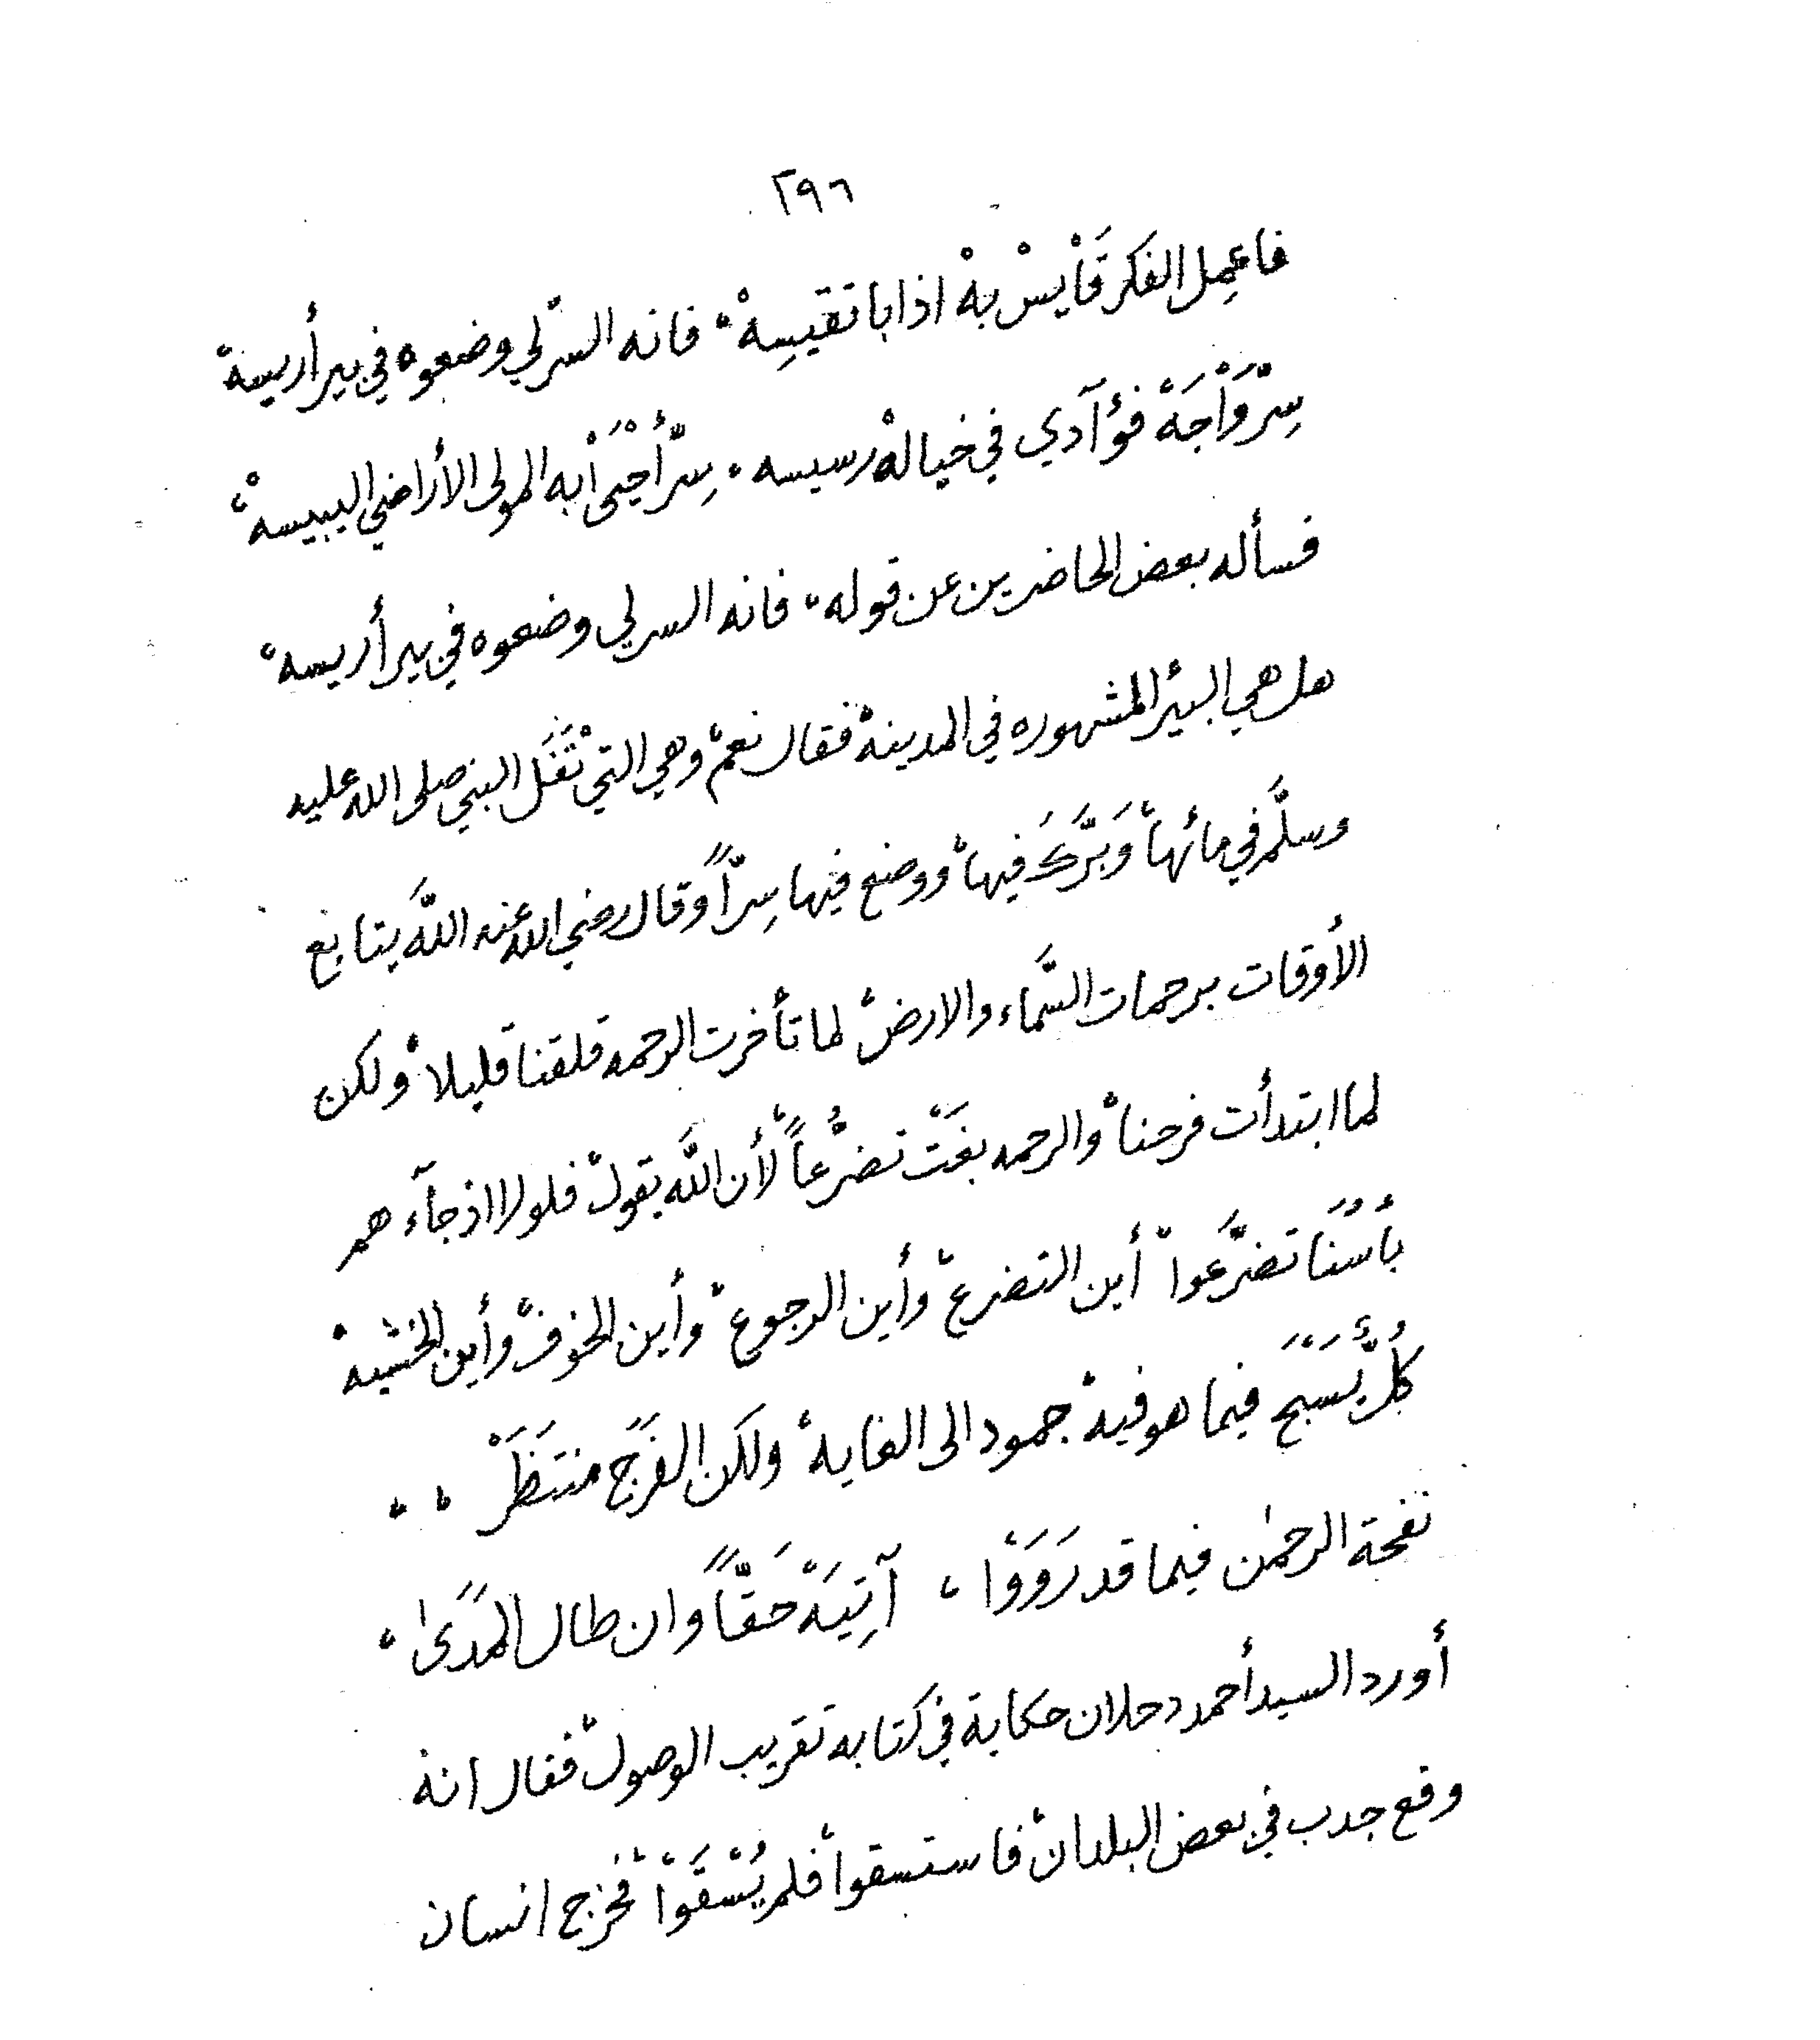 ٢٩٦
فاعمِل الفكر قَايسْ بهْ اذا با تقيسِهْ، فانه السرّ لي وضعوه في بير أريسهْ
سِرّ وَاْجَهْ فؤآدي في خيالهْ رسيسه، سِرّ أَحْيَىْ اَبه المولى الأراضي اليبيسهْ،
فسأله بعض الحاضرين عن قوله، فانه السر لي وضعوه في بير أريسه،
هل هي البئر المشهوره في المدينة، فقال نعمْ، وهي التي تْفَل النبي صلى الله عليه
وسلَّم في مائها، وَبَرَّكَ فيها، ووضع فيها سِرّاً، وقال رضي الله عنه الله يتابع
الأوقات برحمات السَّماء والارض، لما تأخرت الرحمه قلقنا قليلا، ولكن
لما ابتدأت فرحنا، والرحمه بغَتْ تضرُّعاً، لأن الله يقول، فلولا اذ جآءهم
بأسُنَا تضرَّعوا، أين التضرع، وأين الرجوع، وأين الخوف، وأين الخشيه،
كلُّ يَسبَحَ فيما هو فيه، جمود الى الغاية، ولكن الفرَج منتَظَرْ ، ،
نفحة الرحمٰن فيما قد رَوَوْا ، آتِيَهْ حَقّاً وان طال المَدَىٰ ،
أورد السيد أحمد دحلان حكاية في كتابه تقريب الوصول، فقال انه
وقع جدب في بعض البلدان، فاستسقوا، فلم يُسْقَوْا، فخرج انسان